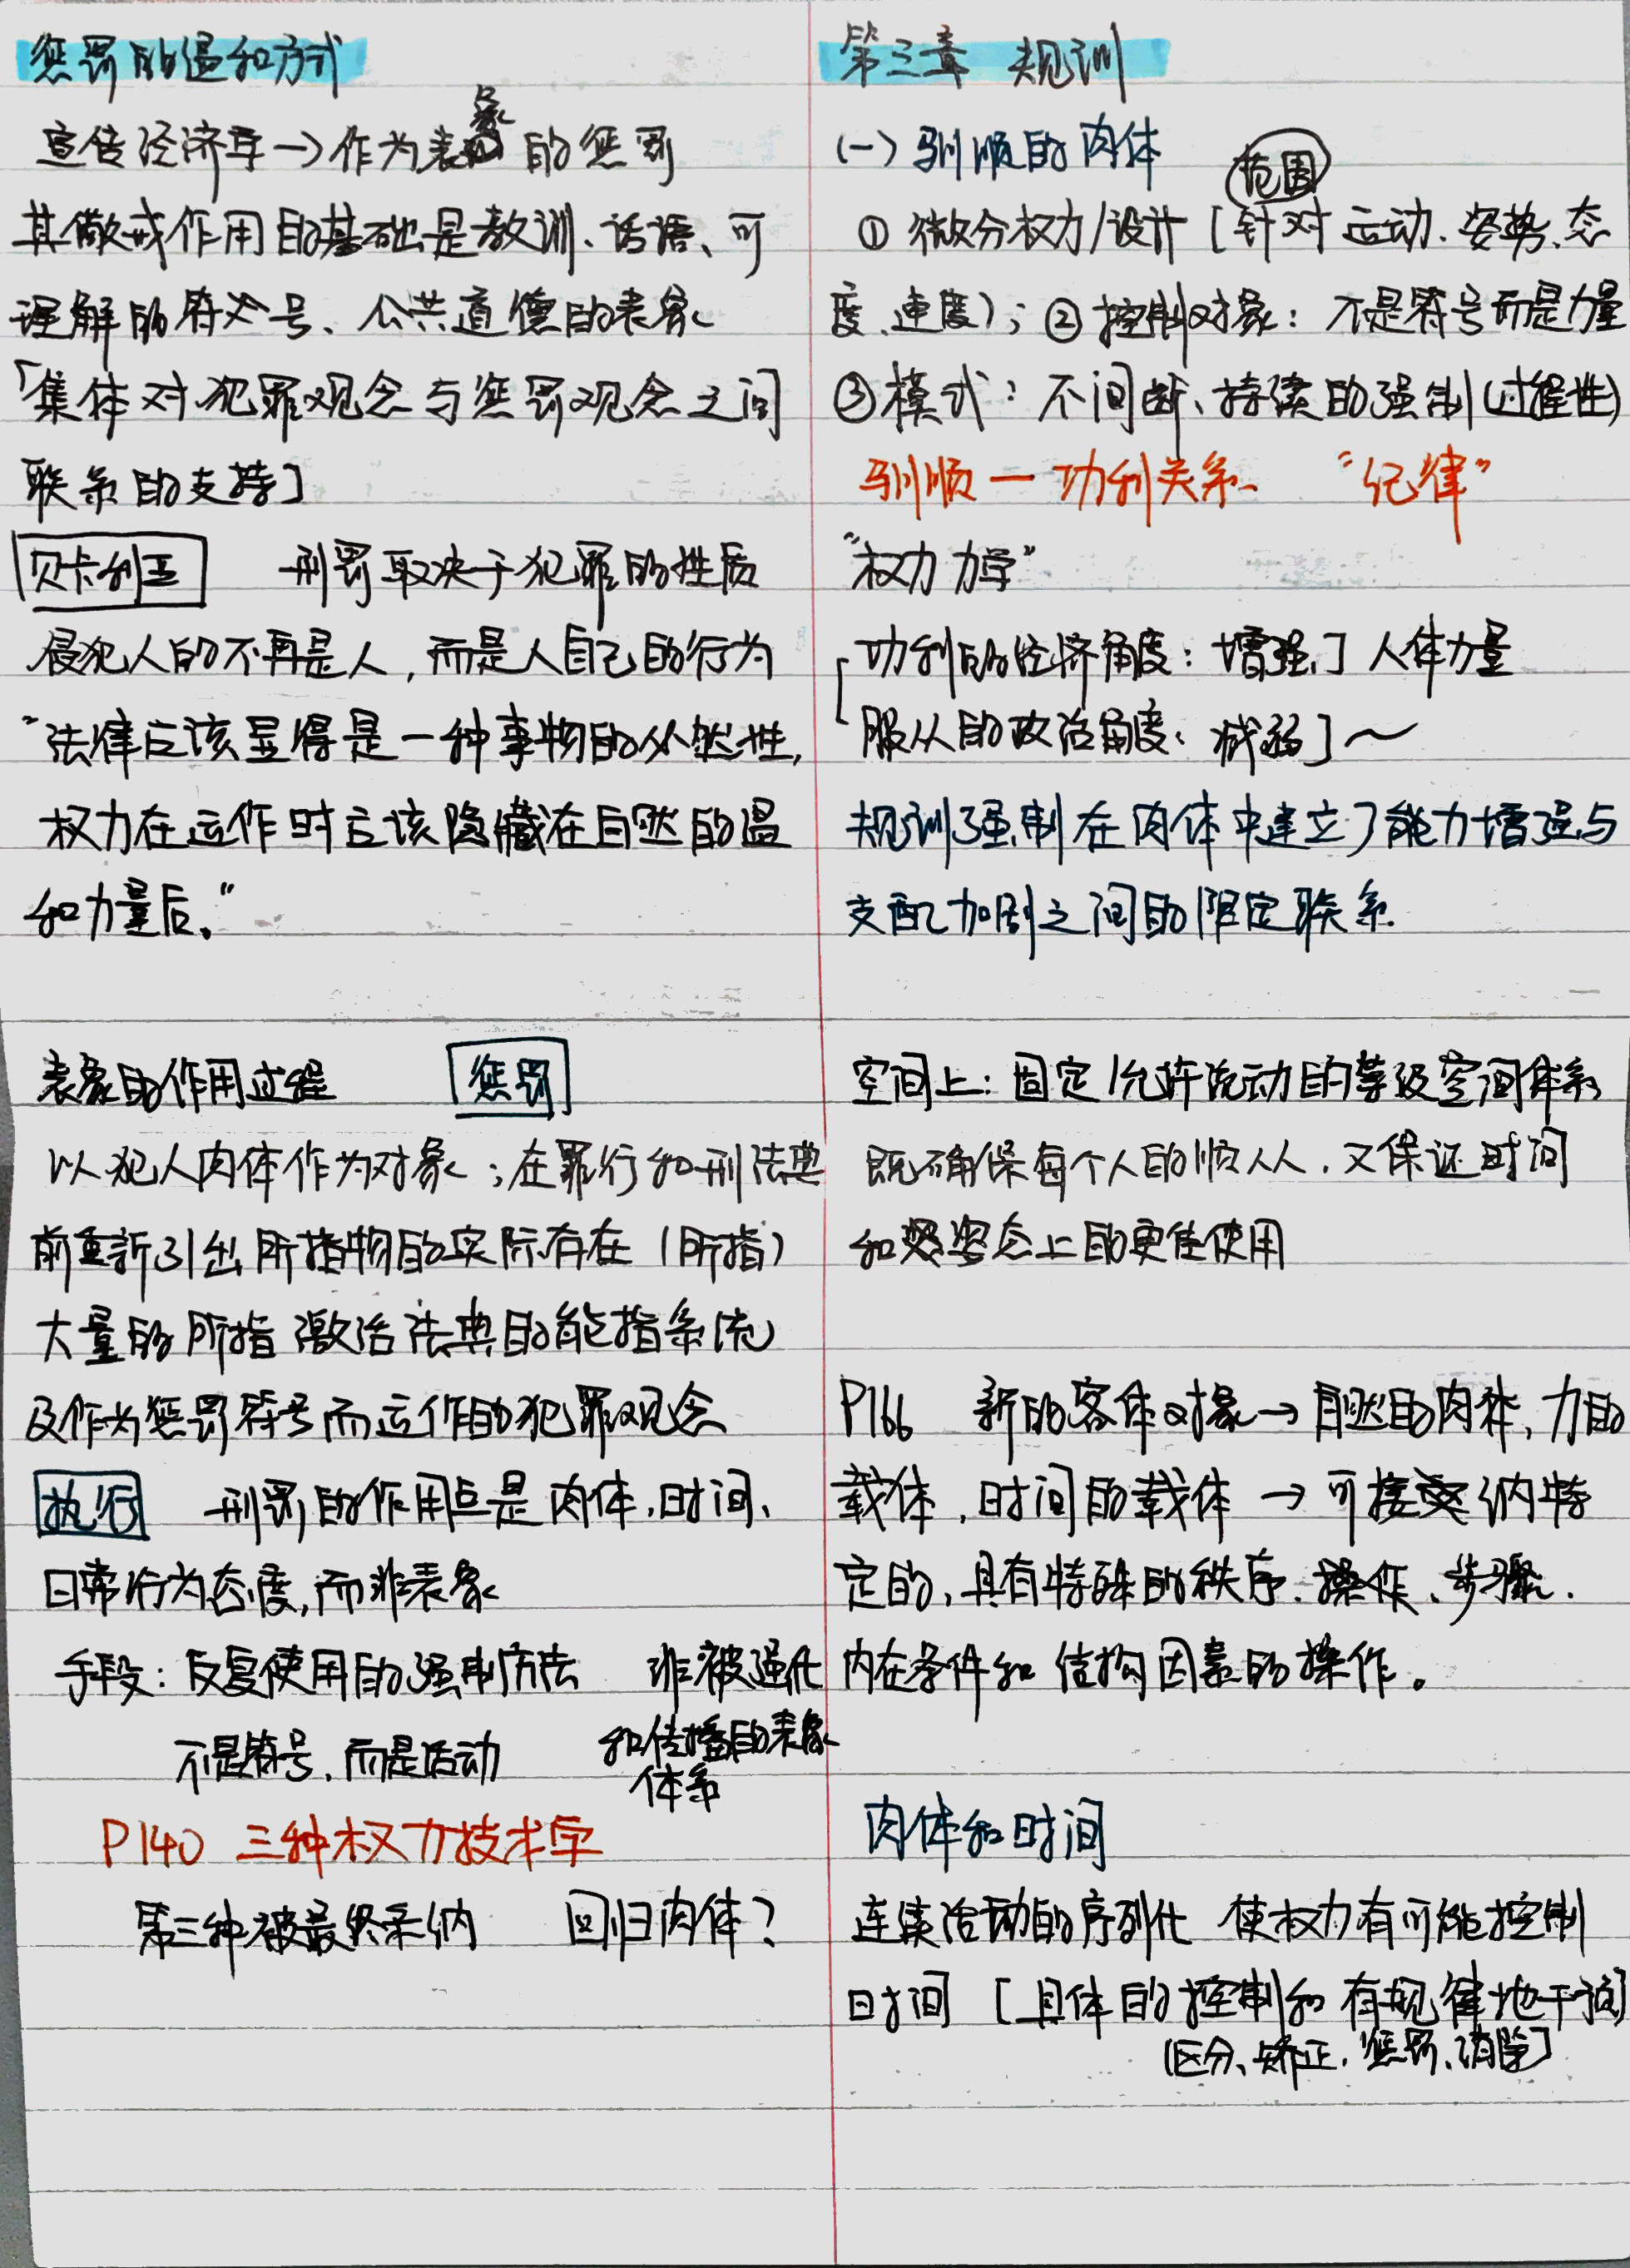 惩罚的温和方式
宣传经济学→作为表象的惩罚
其儆戒作用的基础是教训、话语、可
理解的符号、公共道德的表象
「集体对犯罪观念与惩罚观念之间
联系的支持]
贝卡利亚 刑罚取决于犯罪的性质
侵犯人的不再是人,而是人自己的行为
"法律应该显得是一种事物的必然性,
权力在运作时应该隐藏在自然的温
和力量后。"
表象的作用过程 惩罚
以犯人肉体作为对象;在罪行和刑法典
前重新引出所指物的实际存在(所指)
大量的所指激活法典的能指系统
及作为惩罚符号而运作的犯罪观念
执行 刑罚的作用点是肉体,时间、
日常行为态度,而非表象
手段:反复使用的强制方法 非被强化
和传播的表象
体系
不是符号,而是活动
P140 三种权力技术学
第三种被最终采纳 回归肉体?
第三章 规训
(一)驯顺的肉体
范围
①微分权力/设计[针对运动、姿势、态
度、速度);②控制对象:不是符号而是力量
③模式:不间断、持续的强制(过程性)
驯顺—功利关系 "纪律"
"权力力学"
功利的经济角度:增强了人体力量
服从的政治角度:减弱]~
规训强制在肉体中建立了能力增强与
支配加剧之间的限定联系
空间上:固定/允许流动的等级空间体系
既确保每个人的顺从,又保证时间
和姿态上的更佳使用
P166 新的客体对象→自然的肉体,力的
载体,时间的载体→可接纳特
定的,具有特殊的秩序、操作、步骤、
内在条件和结构因素的操作。
肉体和时间
连续活动的序列化 使权力有可能控制
时间[具体的控制和有规律地干预]
(区分、矫正、惩罚、消除]